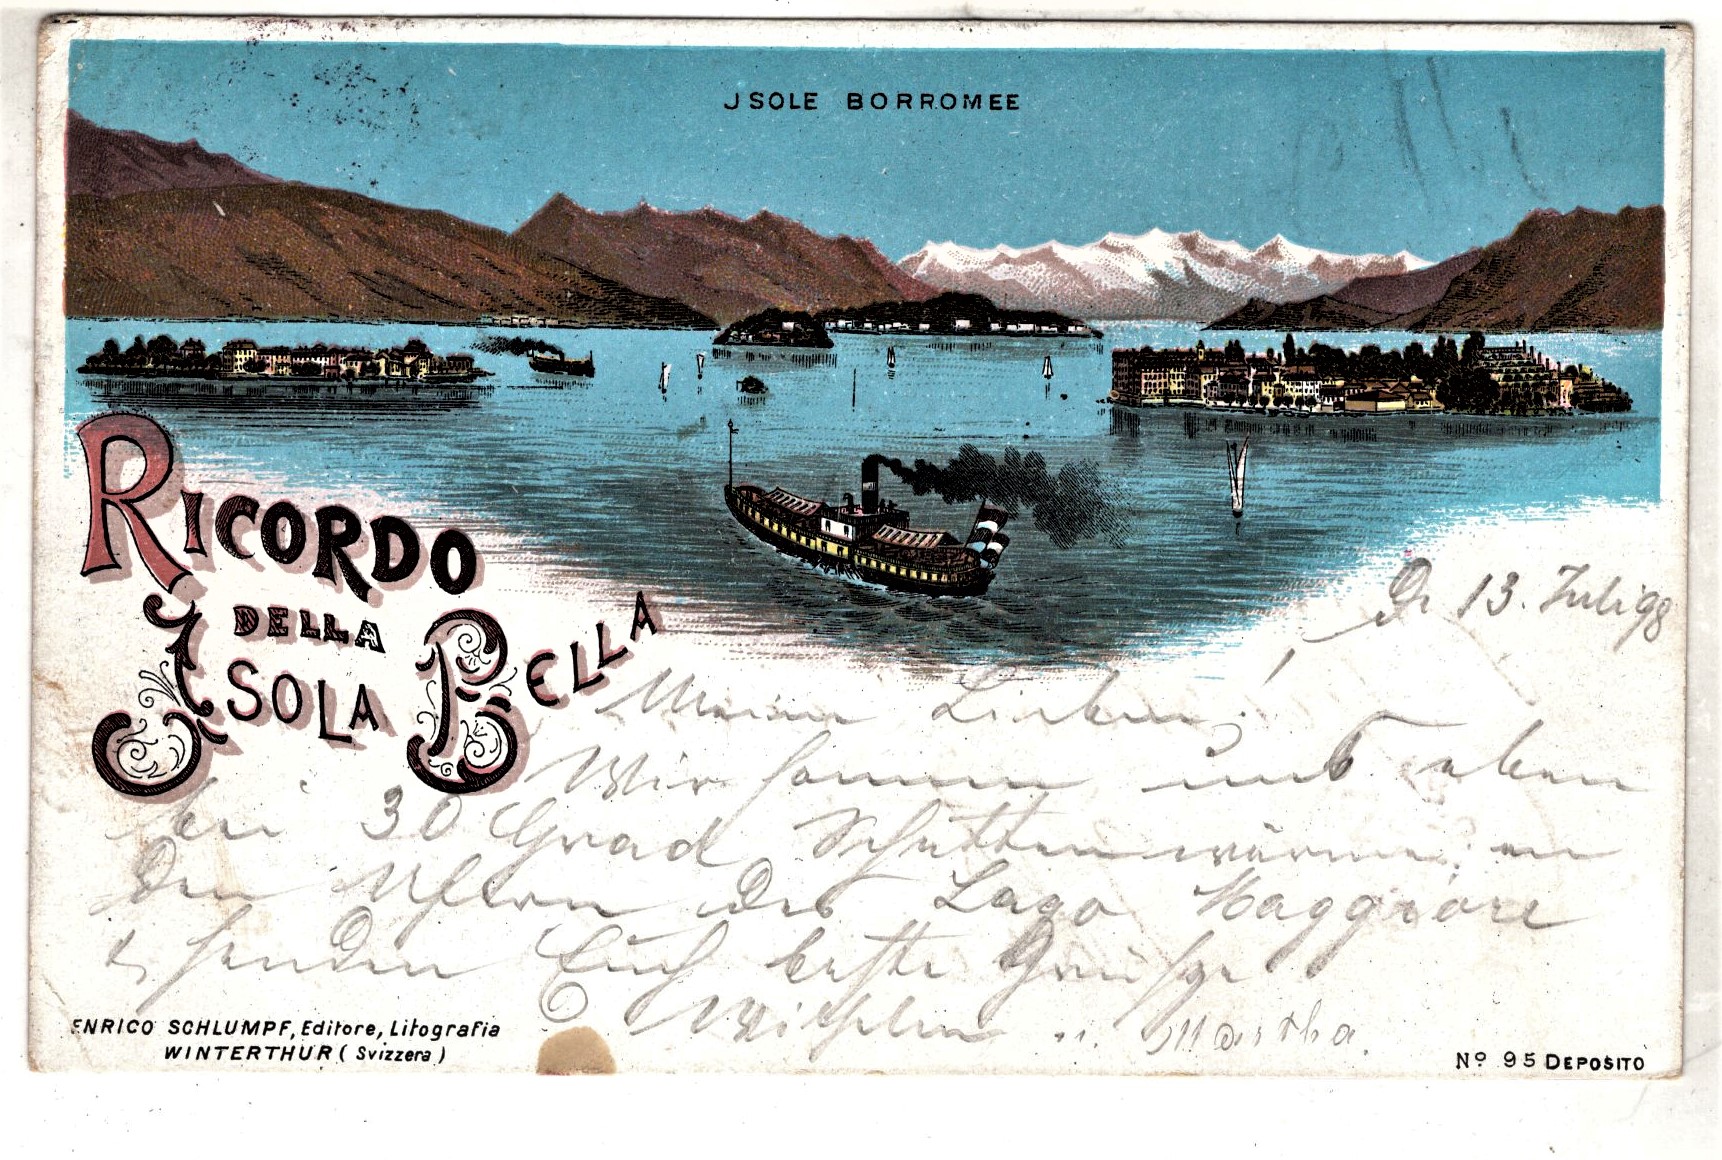 JSOLE BORROMEE
RICORDO
DELLA
ISOLA BELLA
13. Juli 98
Meine Lieben!
Wir sonnen uns eben
bei 30 Grad Schattenwärme an
den Ufern des Lago Maggiore
& senden Euch beste Grüße
Wilhelm u. Martha.
ENRICO SCHLUMPF, Editore, Litografia
WINTERTHUR (Svizzera)
No 95 DEPOSITO